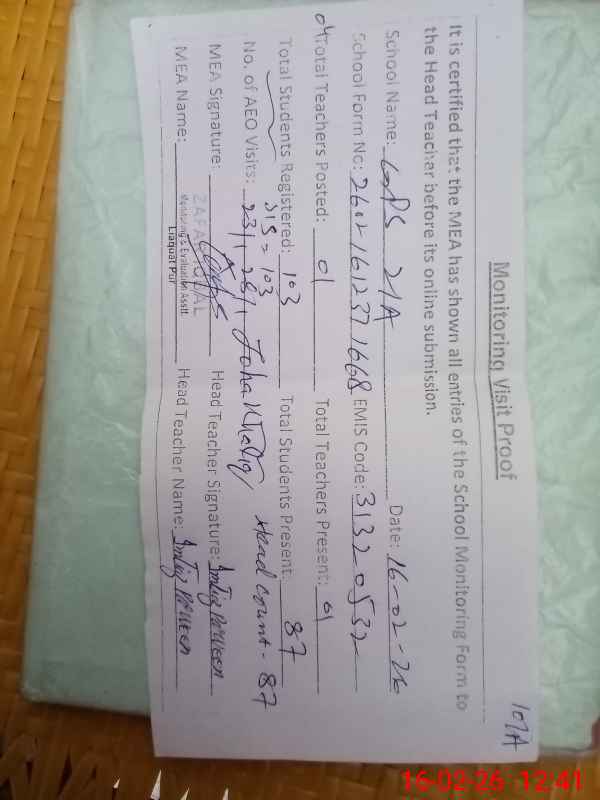 107A
Monitoring Visit Proof
It is certified that the MEA has shown all entries of the School Monitoring Form to
the Head Teacher before its online submission.
School Name: GGPS 21A Date: 16-02-26
School Form No: 2602161237 1668 EMIS Code: 31320532
04 Total Teachers Posted: 01 Total Teachers Present: 01
Total Students Registered: 103 Total Students Present: 87
SIS = 103
No. of AEO Visits: 23/1, 28/1 Head Count - 87
MEA Signature: Head Teacher Signature: Imtiaz Parveen
MEA Name: Head Teacher Name: Imtiaz Parveen
Monitoring & Evaluation Asstt.
Liaquat Pur
16-02-26 12:41